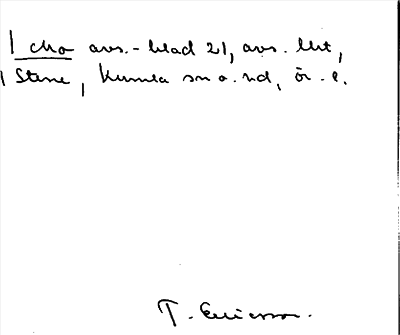 1 cho avs.-blad 21, avs. litt,
1 Stene, Kumla sn o. hd, ör. l.
T. Ericsson.